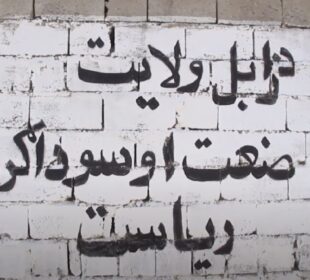 د زابل ولایت
صنعت او سوداګر
ریاست